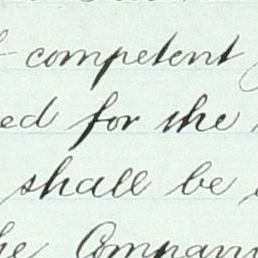 competent
ed for the
shall be
he Compan